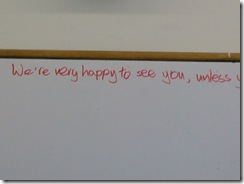 We're very happy to see you, unless y